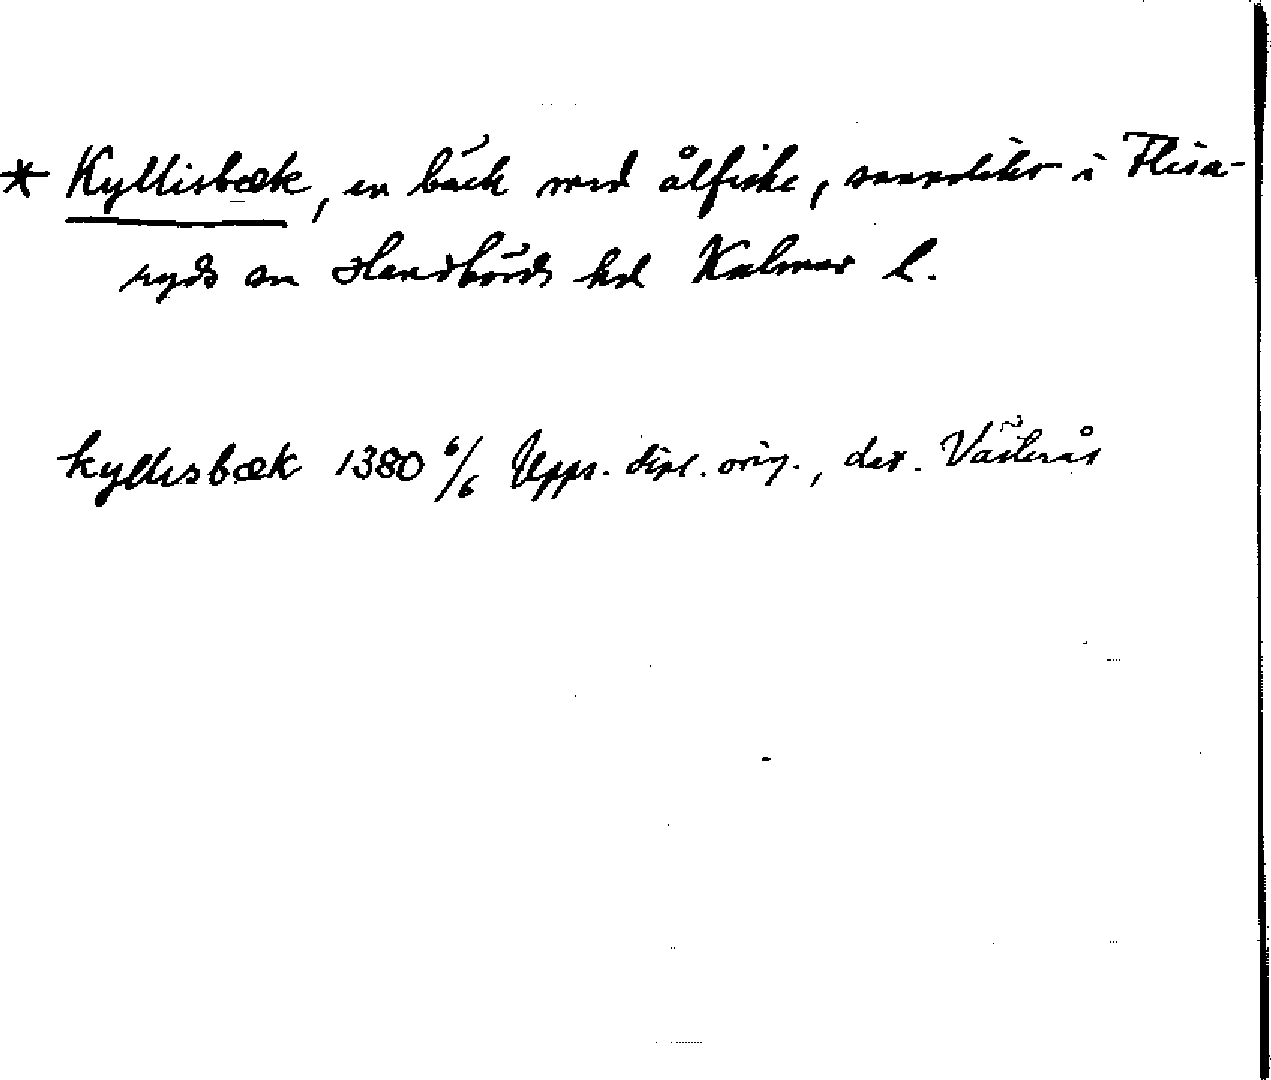 * Kyllisbæk, en bäck med ålfiske, sannolikt i Flise-
ryds sn Handbörds hd Kalmar l.
kyllisbæk 1380 6/6 Upps. dipl. orig., dat. Västerås